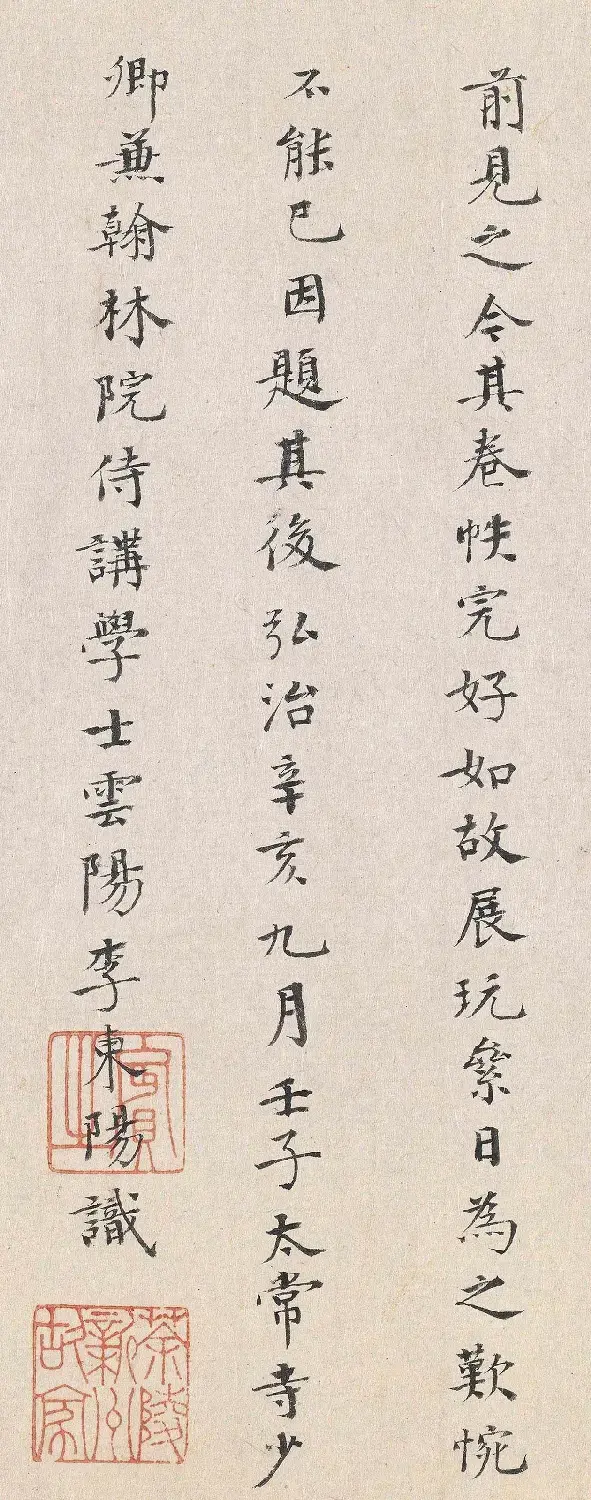 前見之今其卷帙完好如故展玩絫日為之歎惋
不能已因題其後弘治辛亥九月壬子太常寺少
卿兼翰林院侍講學士雲陽李東陽識
賓之
茶陵